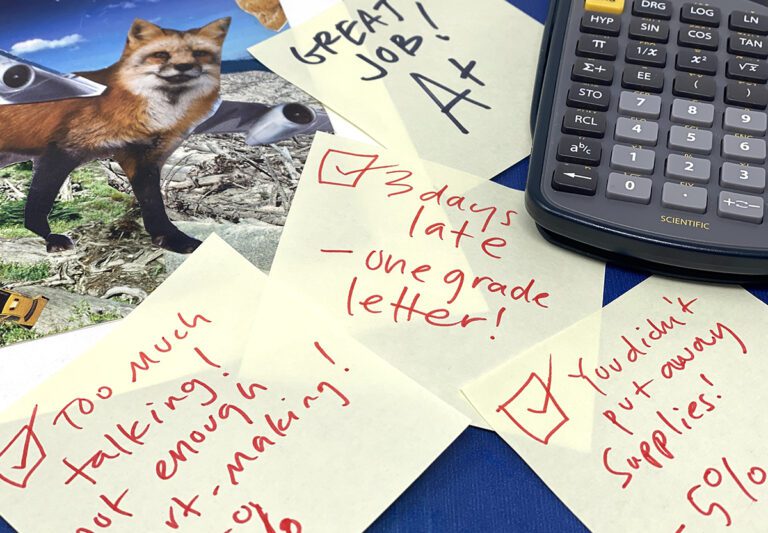 GREAT
JOB!
A+
DRG LOG LN
HYP SIN COS TAN
π 1/x x² √x
Σ+ EE ( )
STO 7 8 9
RCL 4 5 6
a b/c 1 2 3
← 0 .
SCIENTIFIC
3 days
late
- one grade
letter!
TOO MUCH
talking!
not enough
rt-making!
%
You didn't
put away
supplies!
-5%